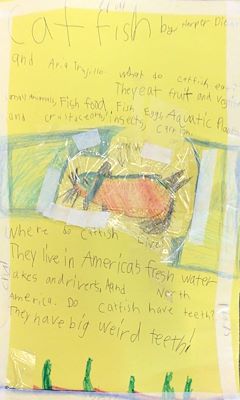 Cat fish by Harper
and Aria Trujillo What do catfish eat?
They eat fruit and
small animals, Fish food, Fish Eggs, Aquatic Plants
and crustaceans, insects, carrion.
Where do catfish live?
They live in America's fresh water
lakes and rivers, and North
America. Do catfish have teeth?
They have big weird teeth!